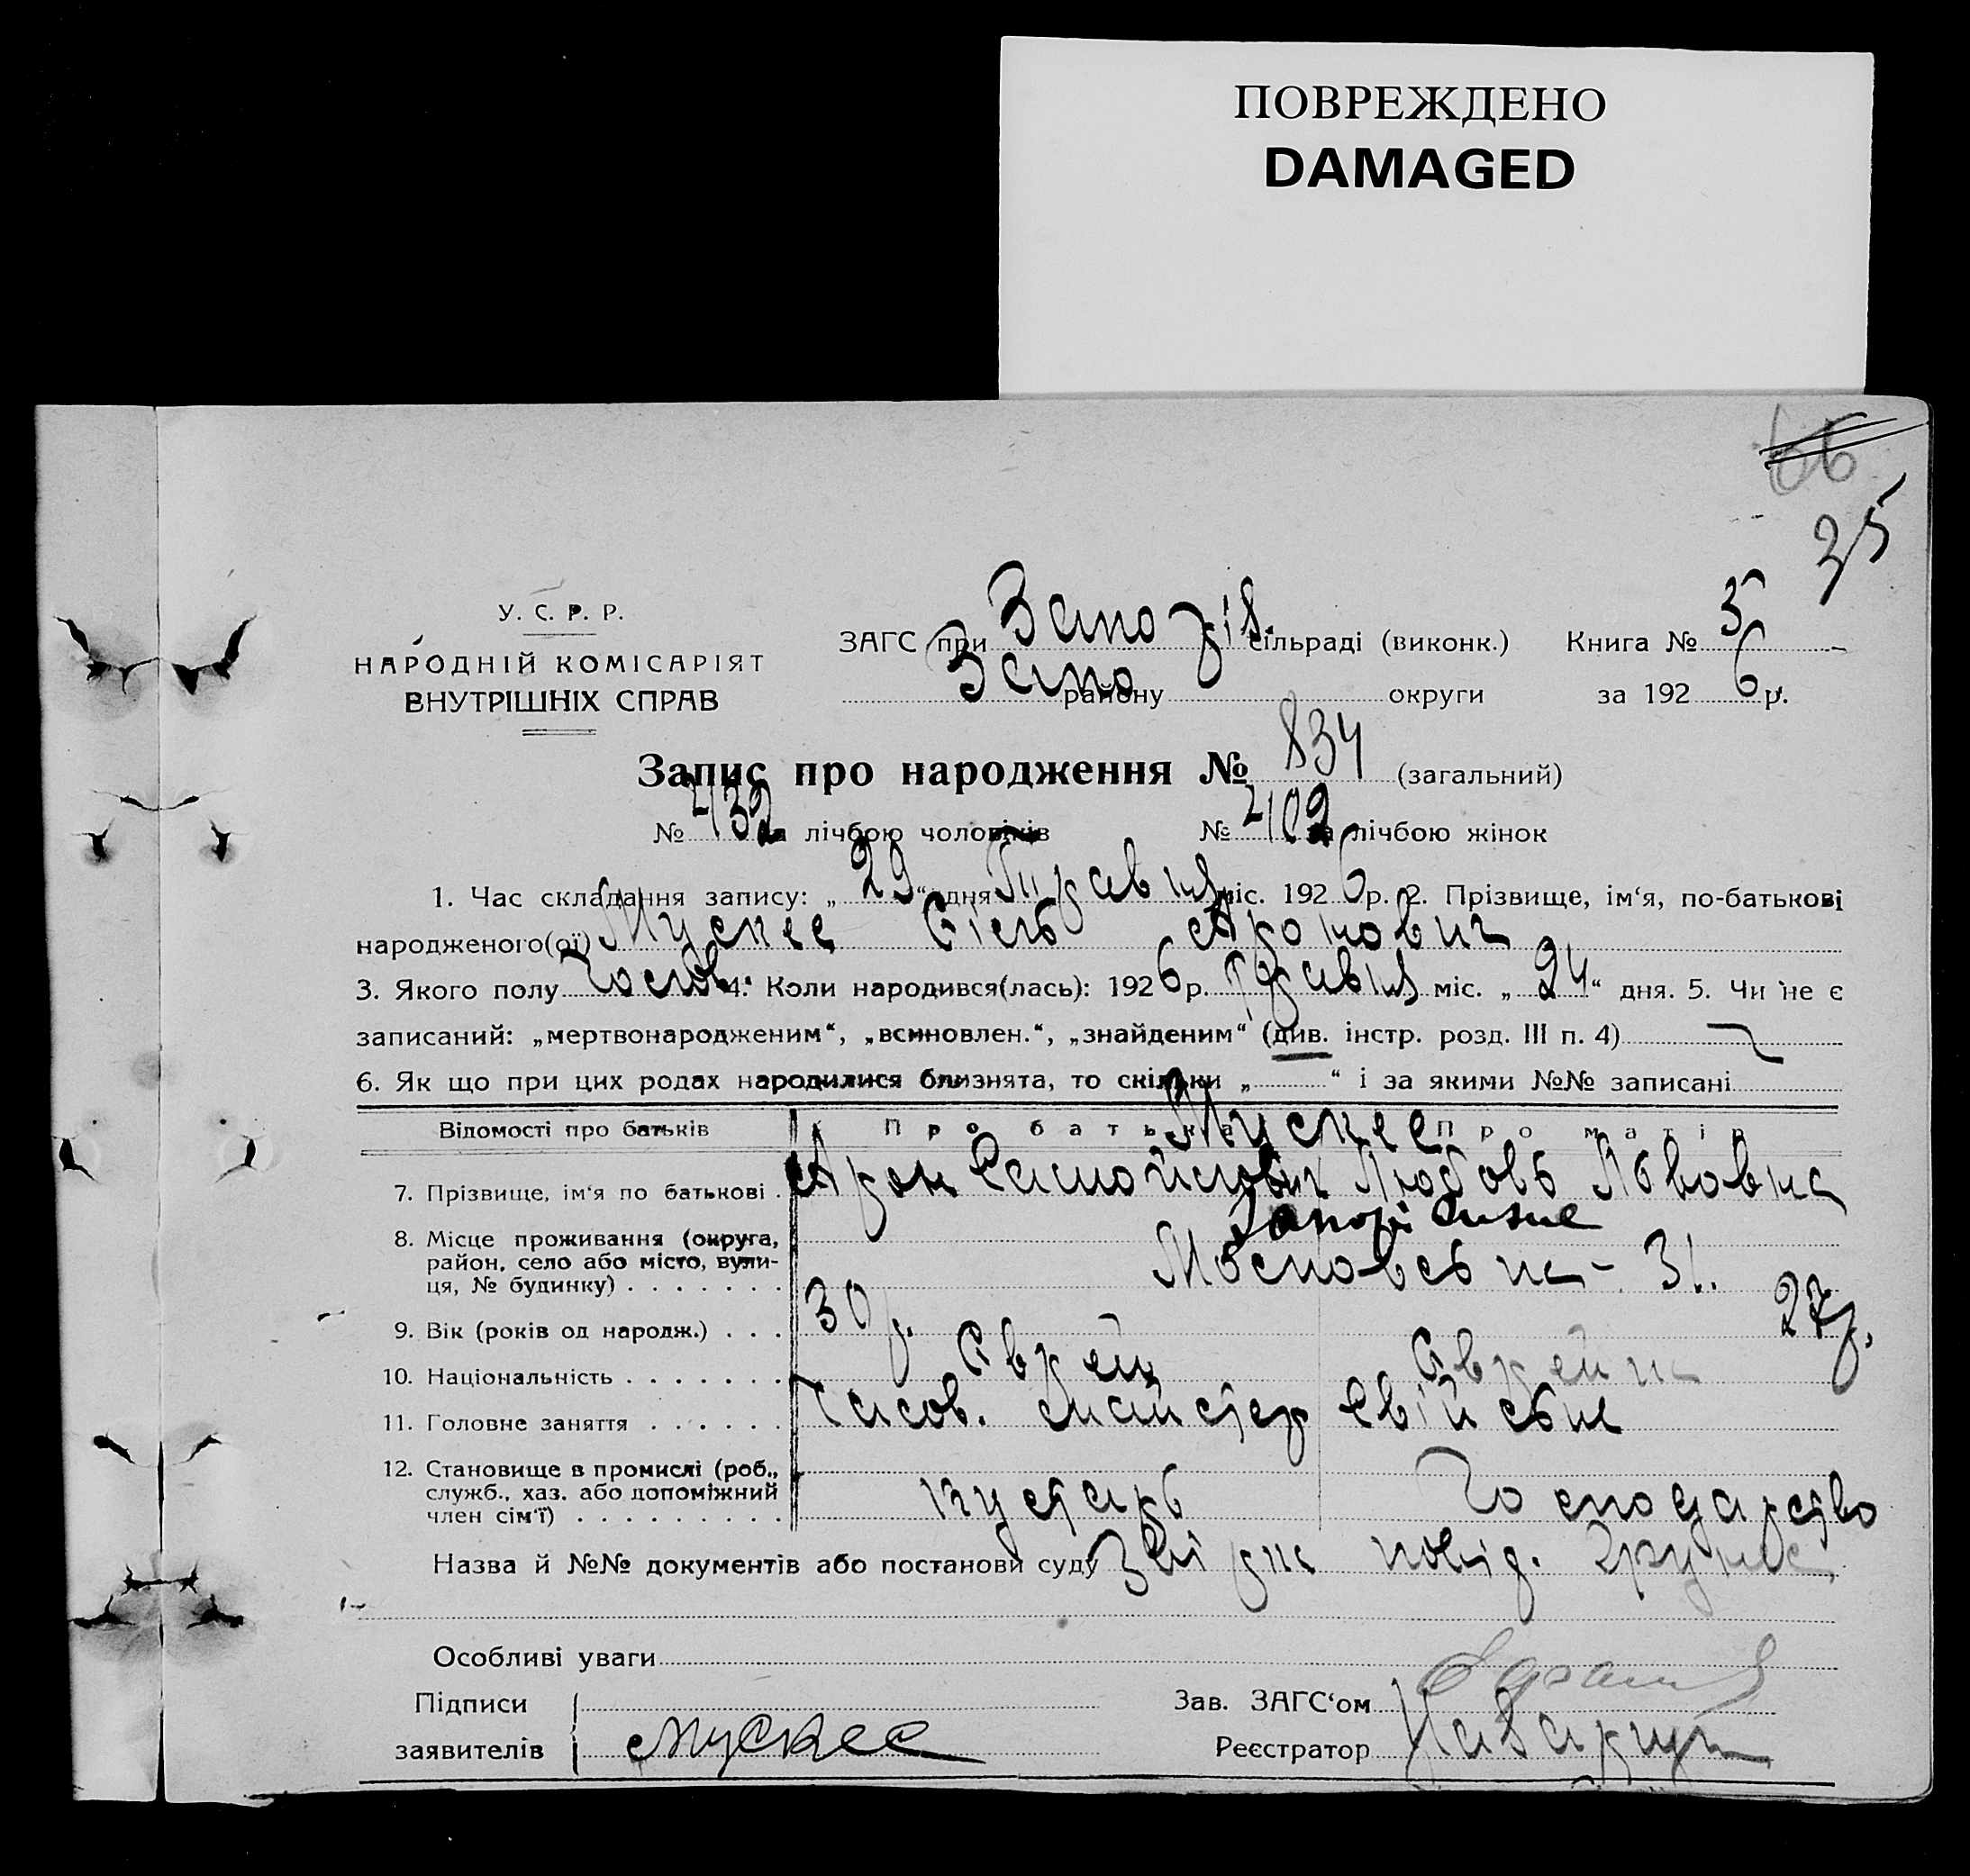 ПОВРЕЖДЕНО
DAMAGED
66
35
У. С. Р. Р.
НАРОДНІЙ КОМІСАРІЯТ
ВНУТРІШНІХ СПРАВ
ЗАГС при Запоріз. сільраді (виконк.) Книга № 5
Запо району округи за 192 6 р.
Запис про народження № 834 (загальний)
№ 432 за лічбою чоловіків № 402 за лічбою жінок
1. Час складання запису: „ 29 “ дня Травня міс. 192 6 р. 2. Прізвище, ім‘я, по-батькові
народженого(ої) Мускее Аронович
3. Якого полу Чолов. 4. Коли народився(лась): 192 6 р. Травня міс. „ 24 “ дня. 5. Чи не є
записаний: „мертвонародженим“, „всиновлен.“, „знайденим“ (див. інстр. розд. III п. 4)
6. Як що при цих родах народилися близнята, то скільки „ “ і за якими №№ записані
Відомості про батьків Про батька Про матір
Мускее
7. Прізвище, ім‘я по батькові . Арон Самойлович Любовь Львовна
8. Місце проживання (округа,
район, село або місто, вули-
ця, № будинку) . . . . . . .
Запоріжжє
Московська - 31.
9. Вік (років од народж.) . . . 30 р. 27 р.
10. Національність . . . . . . . Єврей Єврейка
11. Головне заняття . . . . . . Часов. майстер свійське
12. Становище в промислі (роб.,
служб., хаз. або допоміжний
член сім‘ї) . . . . . . . . . кустарь Господарство
Назва й №№ документів або постанови суду повід.
Особливі уваги
Підписи
заявителів Мускее
Зав. ЗАГС‘ом
Реєстратор